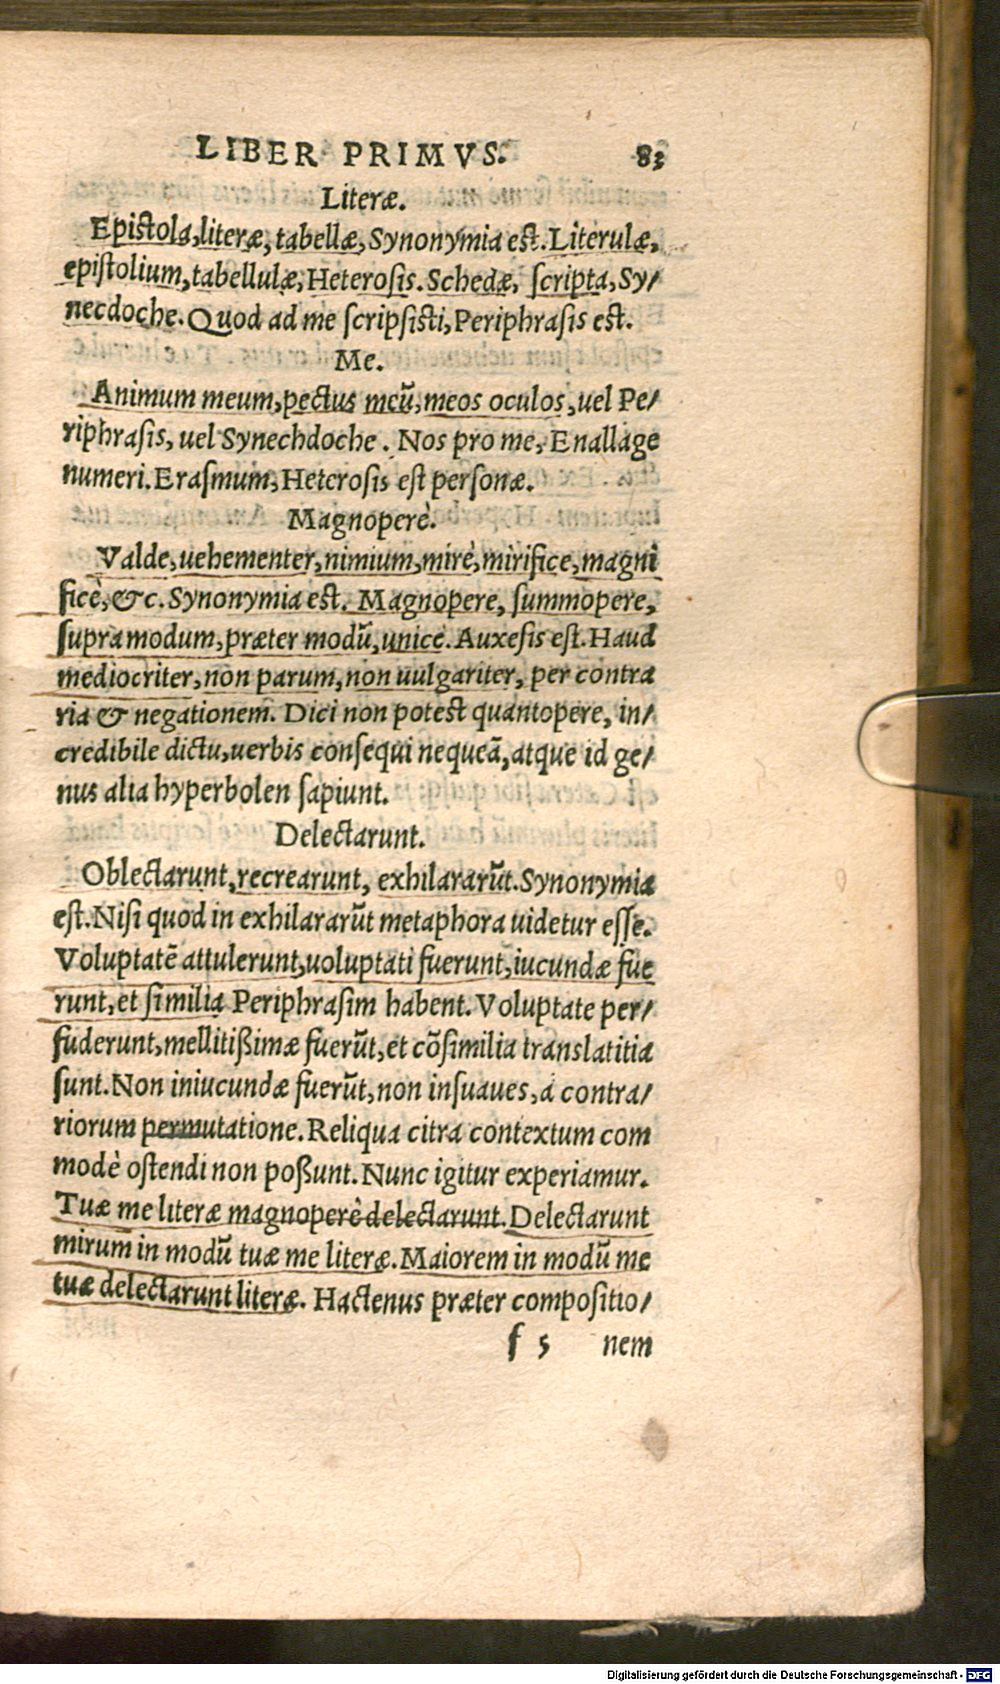 LIBER PRIMVS. 83
Literæ.
Epistola, literæ, tabellæ, Synonymia est. Literulæ,
epistolium, tabellulæ, Heterosis. Schedæ, scripta, Sy/
necdoche. Quod ad me scripsisti, Periphrasis est.
Me.
Animum meum, pectus meũ, meos oculos, uel Pe/
riphrasis, uel Synechdoche. Nos pro me, Enallage
numeri. Erasmum, Heterosis est personæ.
Magnoperè.
Valde, uehementer, nimium, mirè, mirifice, magni
ficè, &c. Synonymia est. Magnopere, summopere,
supra modum, præter modũ, unice. Auxesis est. Haud
mediocriter, non parum, non uulgariter, per contra
ria & negationem. Dici non potest quantopere, in/
credibile dictu, uerbis consequi nequeã, atque id ge/
nus alia hyperbolen sapiunt.
Delectarunt.
Oblectarunt, recrearunt, exhilararũt. Synonymia
est. Nisi quod in exhilararũt metaphora uidetur esse.
Voluptatẽ attulerunt, uoluptati fuerunt, iucundæ fue
runt, et similia Periphrasim habent. Voluptate per/
fuderunt, mellitißimæ fuerũt, et cõsimilia translatitia
sunt. Non iniucundæ fuerũt, non insuaues, a contra/
riorum permutatione. Reliqua citra contextum com
modè ostendi non poßunt. Nunc igitur experiamur.
Tuæ me literæ magnoperè delectarunt. Delectarunt
mirum in modũ tuæ me literæ. Maiorem in modũ me
tuæ delectarunt literæ. Hactenus præter compositio/
f 5 nem
Digitalisierung gefördert durch die Deutsche Forschungsgemeinschaft - DFG